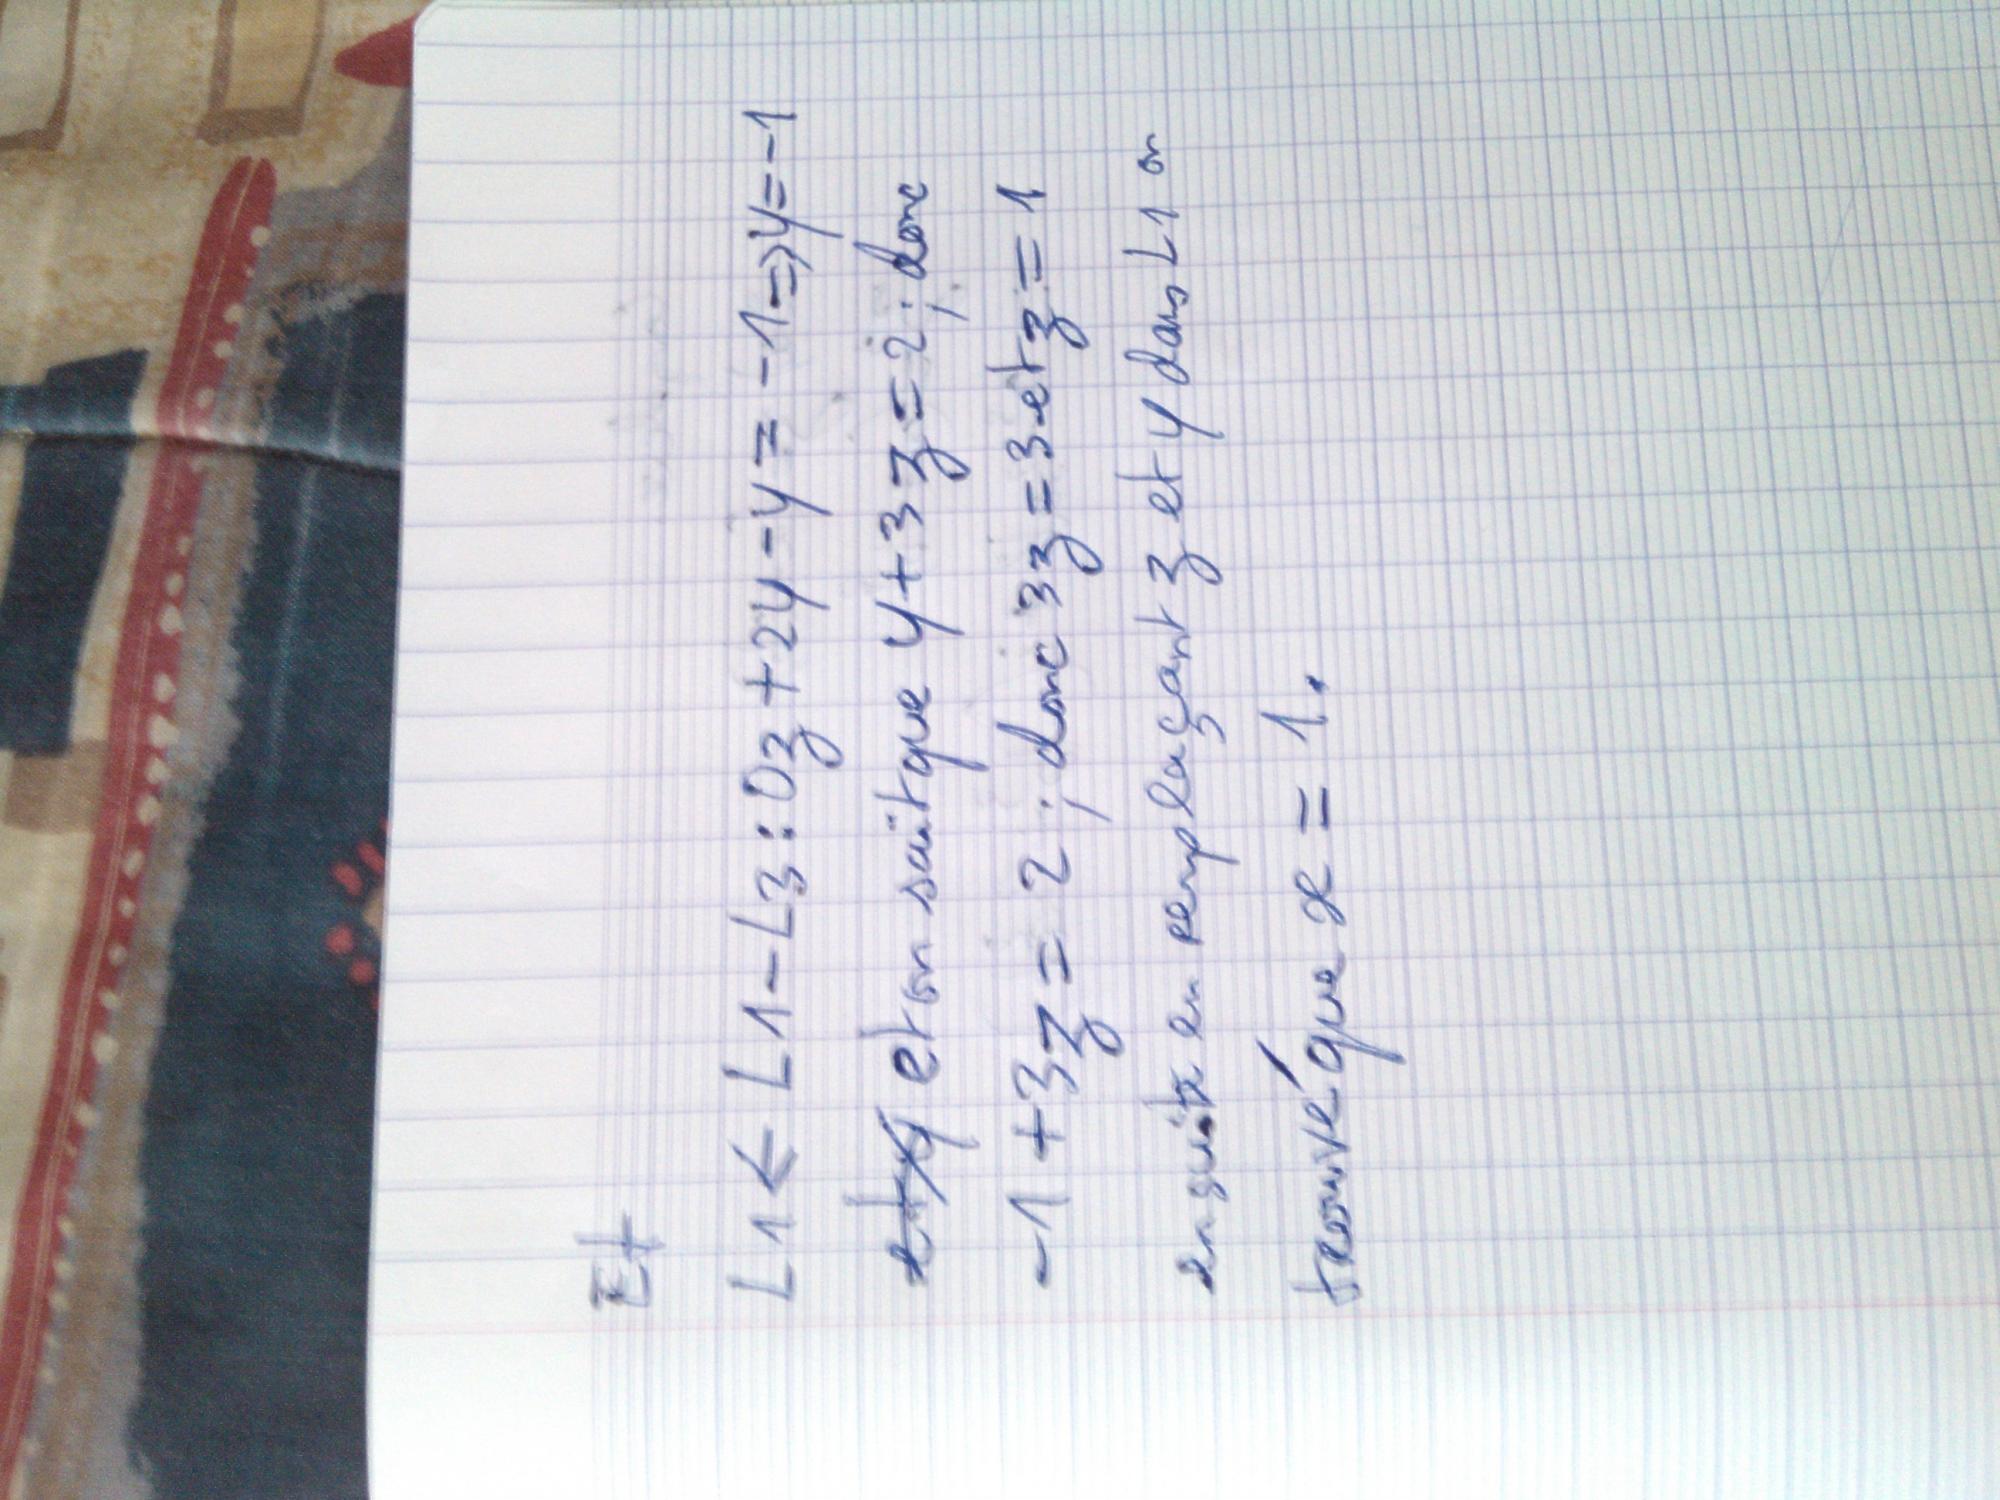 Et
L1 ← L1 - L3 : 0z + 2y - y = -1 => y = -1
et on sait que y + 3z = 2 ; donc
-1 + 3z = 2 ; donc 3z = 3 et z = 1
ensuite en remplaçant z et y dans L1 on
trouvé que x = 1.